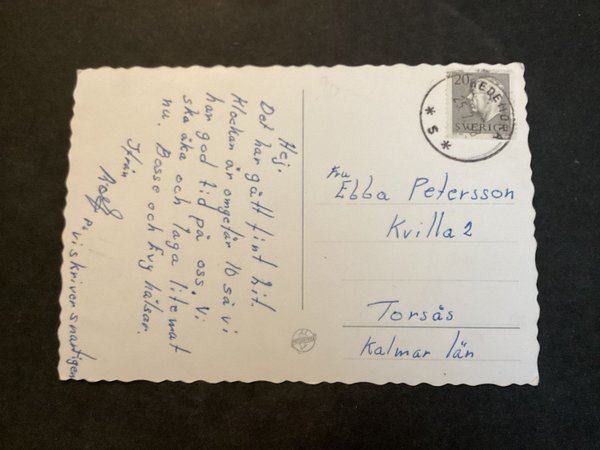 Hej.
Det har gått fint hit
Klockan är omgefär 10 så vi
har god tid på oss. Vi
ska åka och laga lite mat
nu. Bosse och Evy hälsar.
Ifrån
vi skriver snartigen
20
SVERIGE
* 5 *
Fru
Ebba Petersson
Kvilla 2
Torsås
Kalmar län